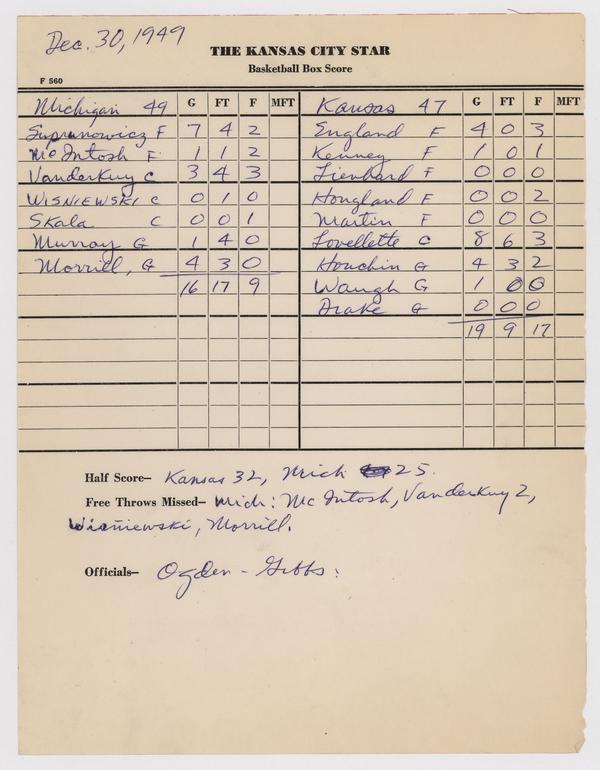 Dec. 30, 1949
THE KANSAS CITY STAR
Basketball Box Score
F 560
Michigan 49 G FT F MFT Kansas 47 G FT F MFT
Suprunowicz F 7 4 2 England F 4 0 3
McIntosh F 1 1 2 Kenney F 1 0 1
VanderKuy C 3 4 3 Lienhard F 0 0 0
WISNIEWSKI C 0 1 0 Hougland F 0 0 2
Skala C 0 0 1 Martin F 0 0 0
Murray G 1 4 0 Lovellette C 8 6 3
Morrill, G 4 3 0 Houchin G 4 3 2
16 17 9 Waugh G 1 0 0
Drake G 0 0 0
19 9 17
Half Score— Kansas 32, Mich 25.
Free Throws Missed— Mich: McIntosh, VanderKuy 2,
Wisniewski, Morrill.
Officials— Ogden - Gibbs: